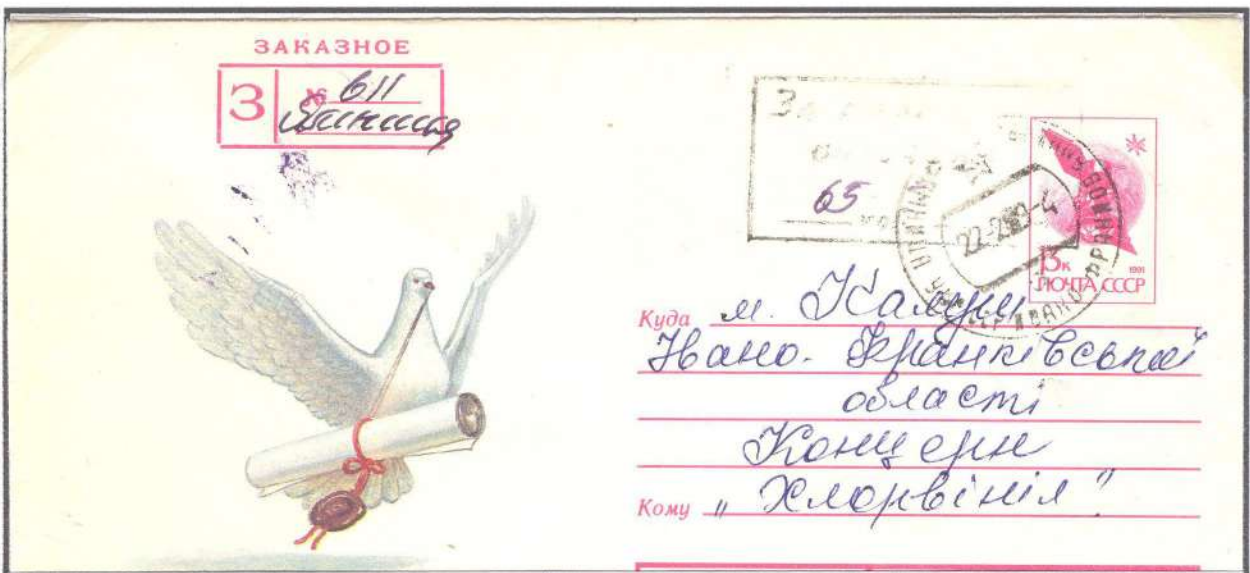 ЗАКАЗНОЕ
З № 611
65
22-2
15к 1991
ПОЧТА СССР
Куда м. Калуш
Івано-Франківської
області
Концерн
Кому „Хлорвініл"